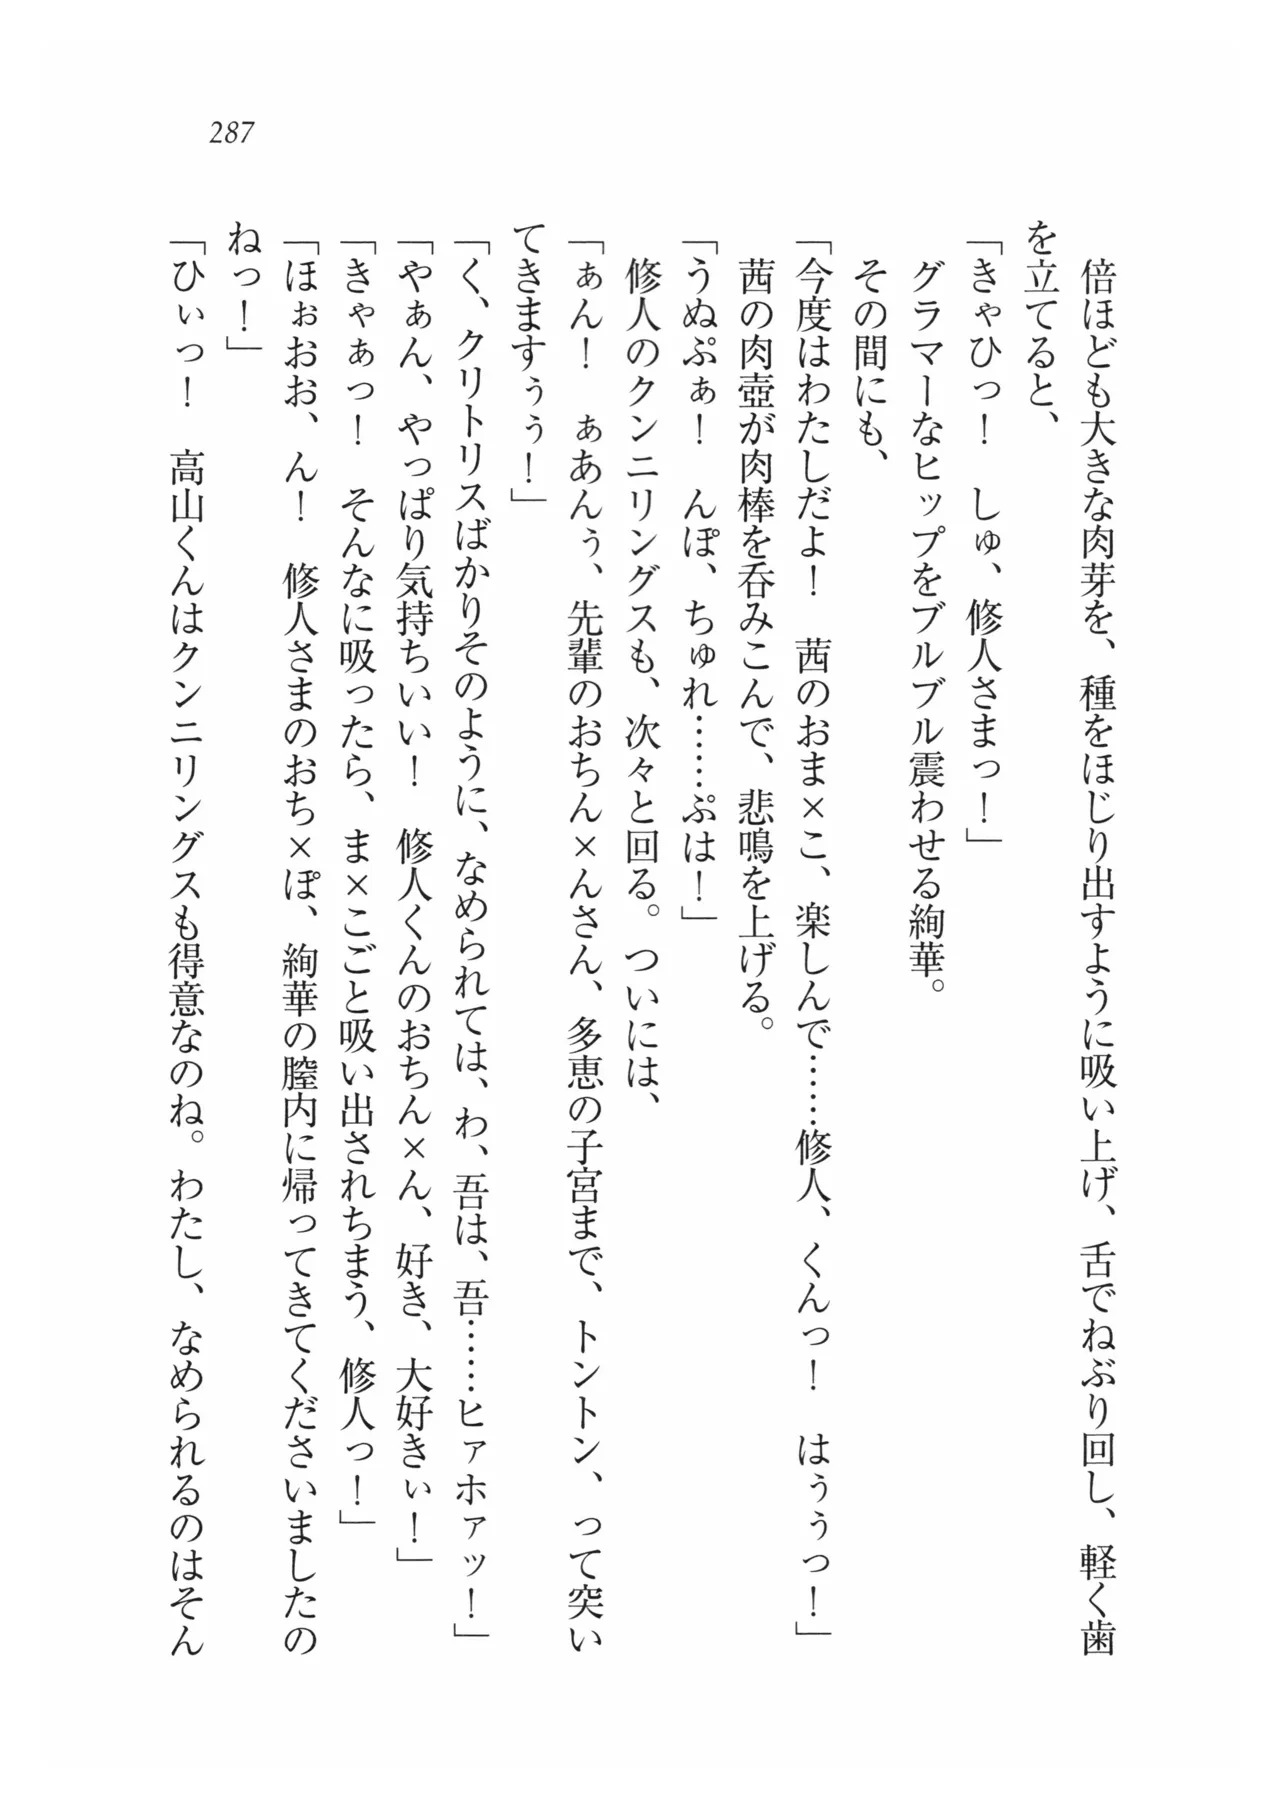 287
倍ほども大きな肉芽を、種をほじり出すように吸い上げ、舌でねぶり回し、軽く歯
を立てると、
「きゃひっ！　しゅ、修人さまっ！」
グラマーなヒップをブルブル震わせる絢華。
その間にも、
「今度はわたしだよ！　茜のおま×こ、楽しんで……修人、くんっ！　はぅぅっ！」
茜の肉壺が肉棒を呑みこんで、悲鳴を上げる。
「うぬぷぁ！　んぽ、ちゅれ……ぷは！」
修人のクンニリングスも、次々と回る。ついには、
「ぁん！　ぁあんぅ、先輩のおちん×んさん、多恵の子宮まで、トントン、って突い
てきますぅぅ！」
「く、クリトリスばかりそのように、なめられては、わ、吾は、吾……ヒァホァッ！」
「やぁん、やっぱり気持ちいい！　修人くんのおちん×ん、好き、大好きぃ！」
「きゃぁっ！　そんなに吸ったら、ま×こごと吸い出されちまう、修人っ！」
「ほぉおお、ん！　修人さまのおち×ぽ、絢華の膣内に帰ってきてくださいましたの
ねっ！」
「ひぃっ！　高山くんはクンニリングスも得意なのね。わたし、なめられるのはそん